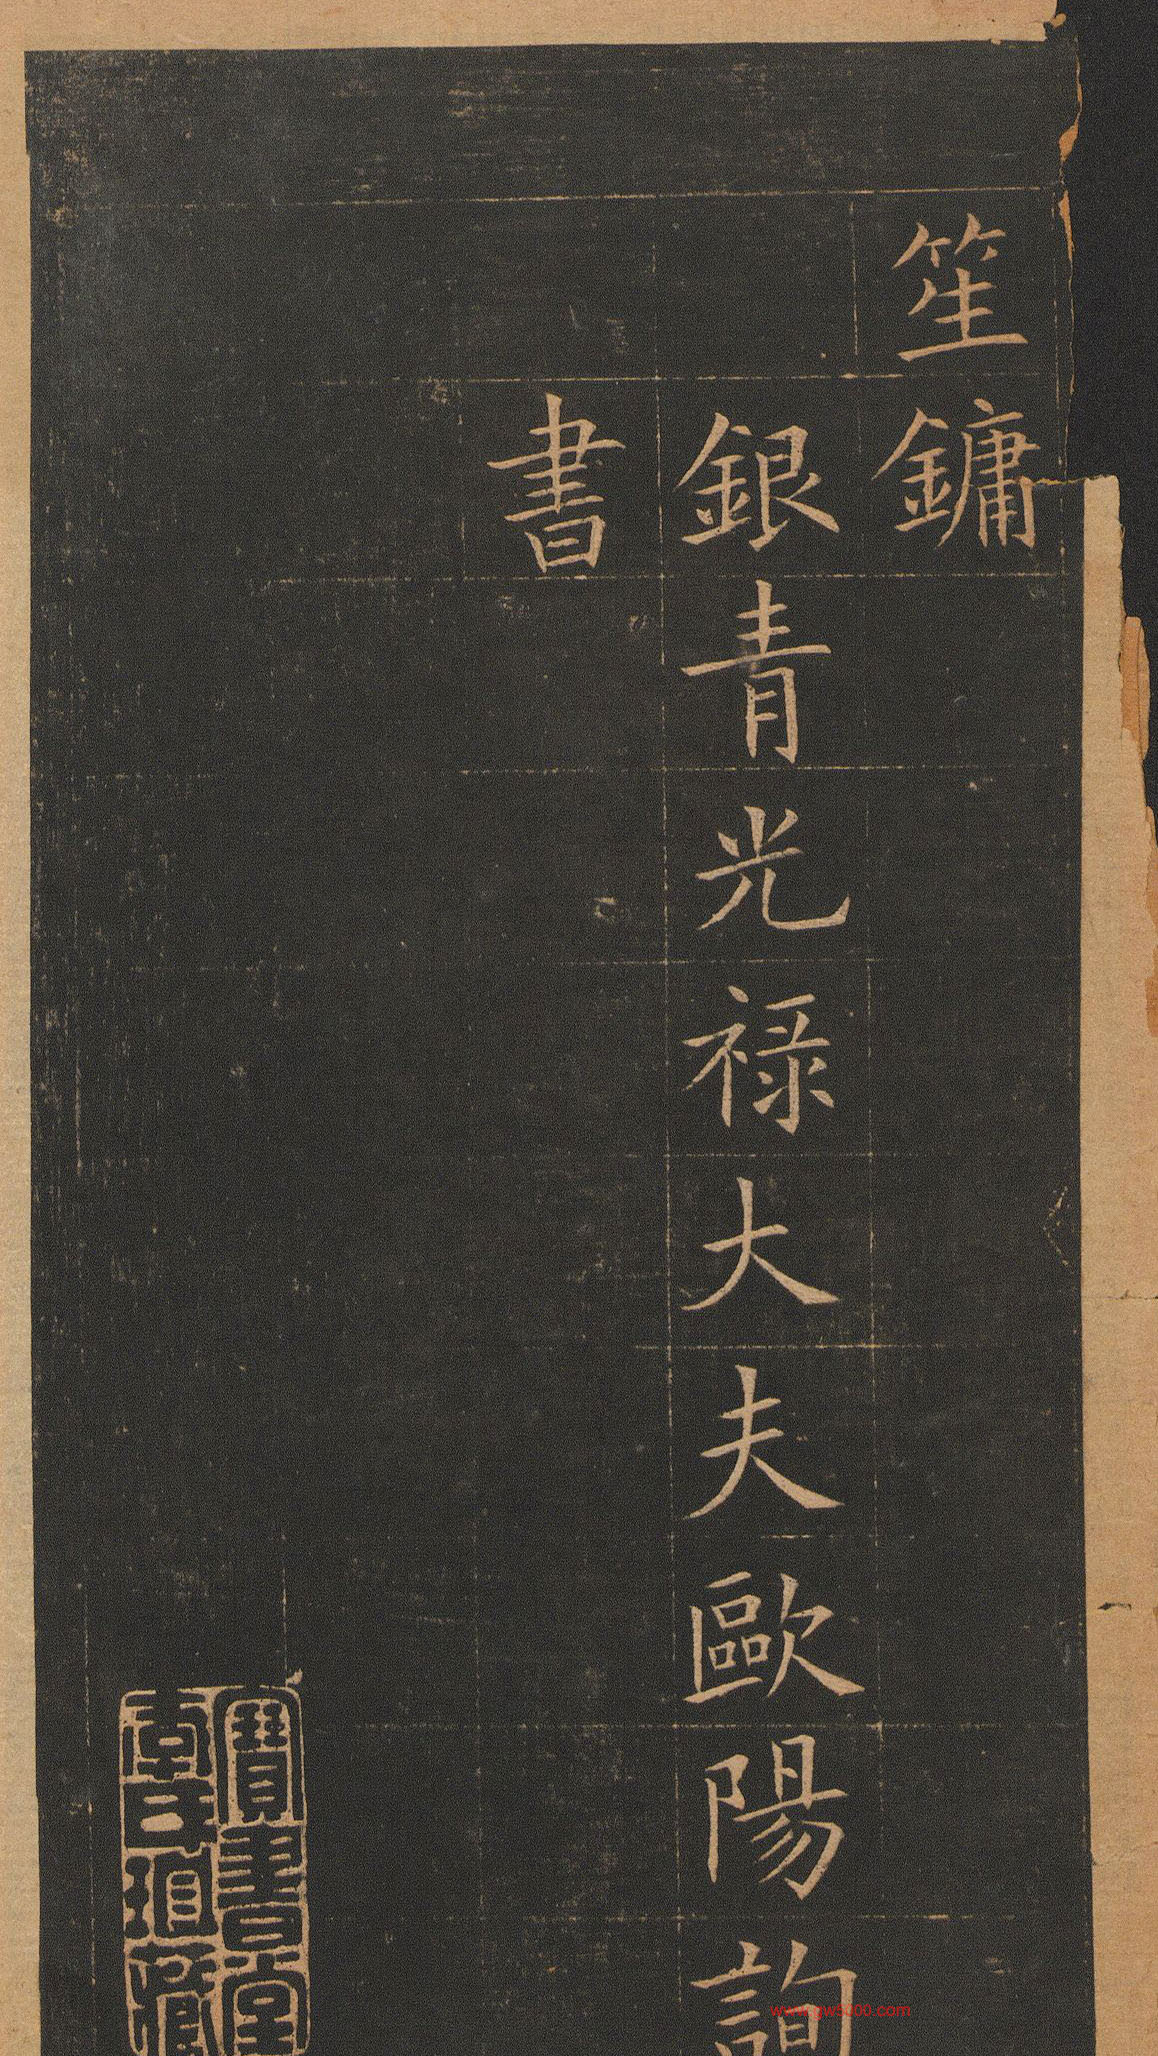 笙鏞
銀青光禄大夫歐陽詢
書
www.gw5000.com